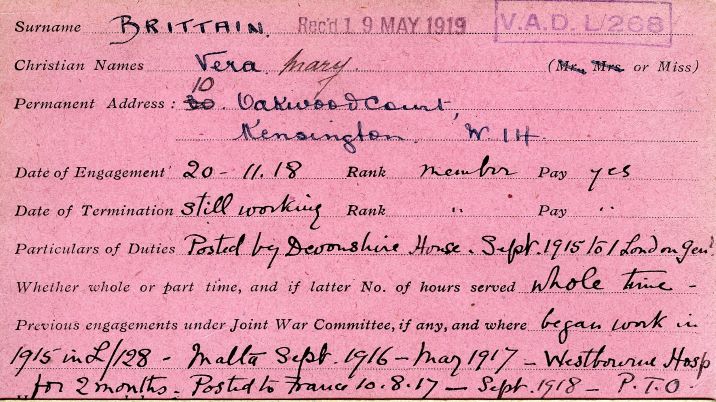 Surname BRITTAIN. Rec'd 19 MAY 1919 V.A.D. L/268
Christian Names Vera Mary. (Mr., Mrs. or Miss)
10
Permanent Address: 30. Oakwood Court,
Kensington. W.14.
Date of Engagement 20-11.18 Rank member Pay yes
Date of Termination still working Rank " Pay "
Particulars of Duties Posted by Devonshire House. Sept. 1915 to 1 London Gen'l
Whether whole or part time, and if latter No. of hours served whole time -
Previous engagements under Joint War Committee, if any, and where began work in
1915 in L/128 - Malta Sept. 1916 - May 1917 - Westbourne Hosp
for 2 months. Posted to France 10.8.17 - Sept. 1918 - P.T.O.